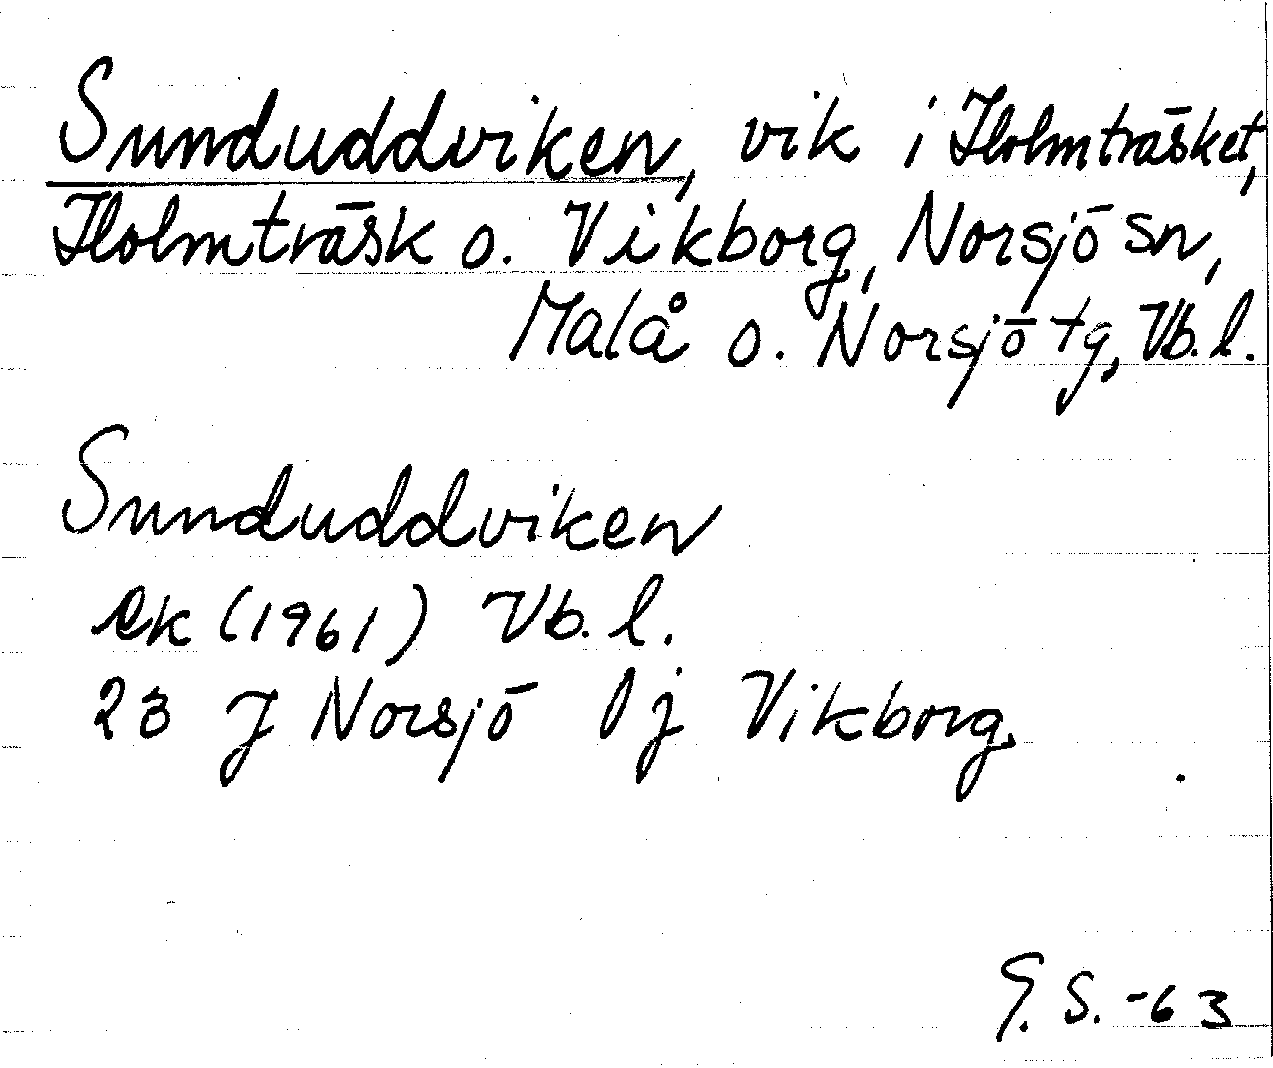 Sunduddviken, vik i Holmträsket,
Holmträsk o. Vikborg, Norsjö sn,
Malå o. Norsjö tg, Vb. l.
Sunduddviken
ek (1961) Vb. l.
23 J Norsjö Ij Vikborg
G. S. -63